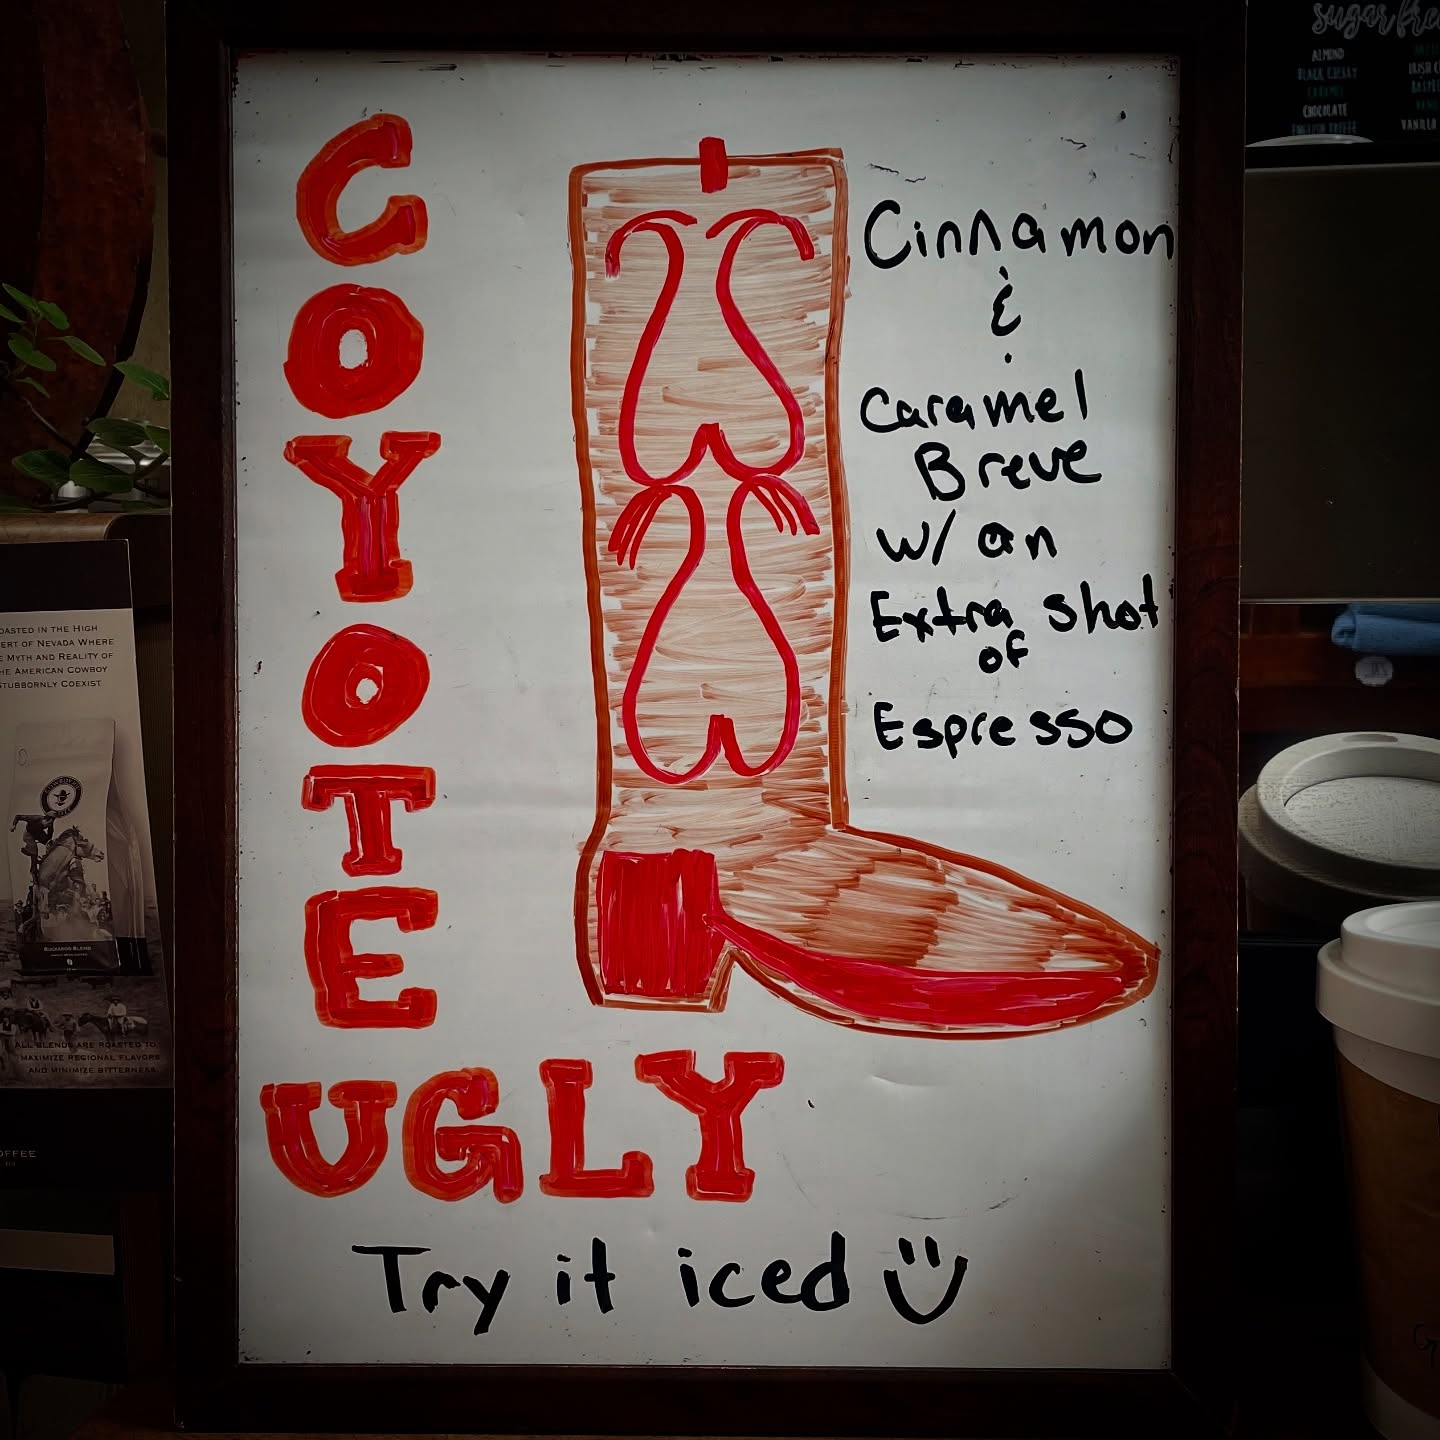 COYOTE
UGLY
Cinnamon
&
Caramel
Breve
w/ an
Extra shot
of
Espresso
Try it iced
sugar free
ALMOND
BLACK CHERRY
CARAMEL
CHOCOLATE
ENGLISH TOFFEE
VANILLA
OASTED IN THE HIGH
ERT OF NEVADA WHERE
E MYTH AND REALITY OF
HE AMERICAN COWBOY
STUBBORNLY COEXIST
BUCKAROO BLEND
ALL BLENDS ARE ROASTED TO
MAXIMIZE REGIONAL FLAVORS
AND MINIMIZE BITTERNESS.
OFFEE